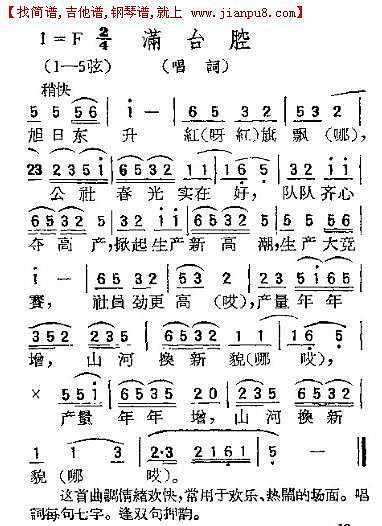 [找简谱,吉他谱,钢琴谱,就上 www.jianpu8.com]
1=F 2/4 滿台腔
(1—5弦) (唱詞)
稍快
5 5 56 | i — | 65 32 | 532 |
旭日东 升 紅(呀紅)旗飄(哪),
23 235i | 6532 11 | 165 | 32 ii |
公社春光实在好,队队齐心
6532 | 22 ii | 6532 | 25 | 55 56 |
夺高产,掀起生产新高潮,生产大竞
i — | 65 32 | 53 2 | 235 i65 |
賽, 社員劲更高(哎),产量年年
352 | 235i 6532 | 1 1 | 16 5 |
增, 山河換新貌(哪哎),
× 55i | 6535 20 | 235 6532 |
产量年年增,山河換新
1 1 3 | 2·3 2161 | 5 — ‖
貌(哪 哎)。
这首曲調情緒欢快,常用于欢乐、热鬧的场面。唱
詞每句七字。逢双句押韵。